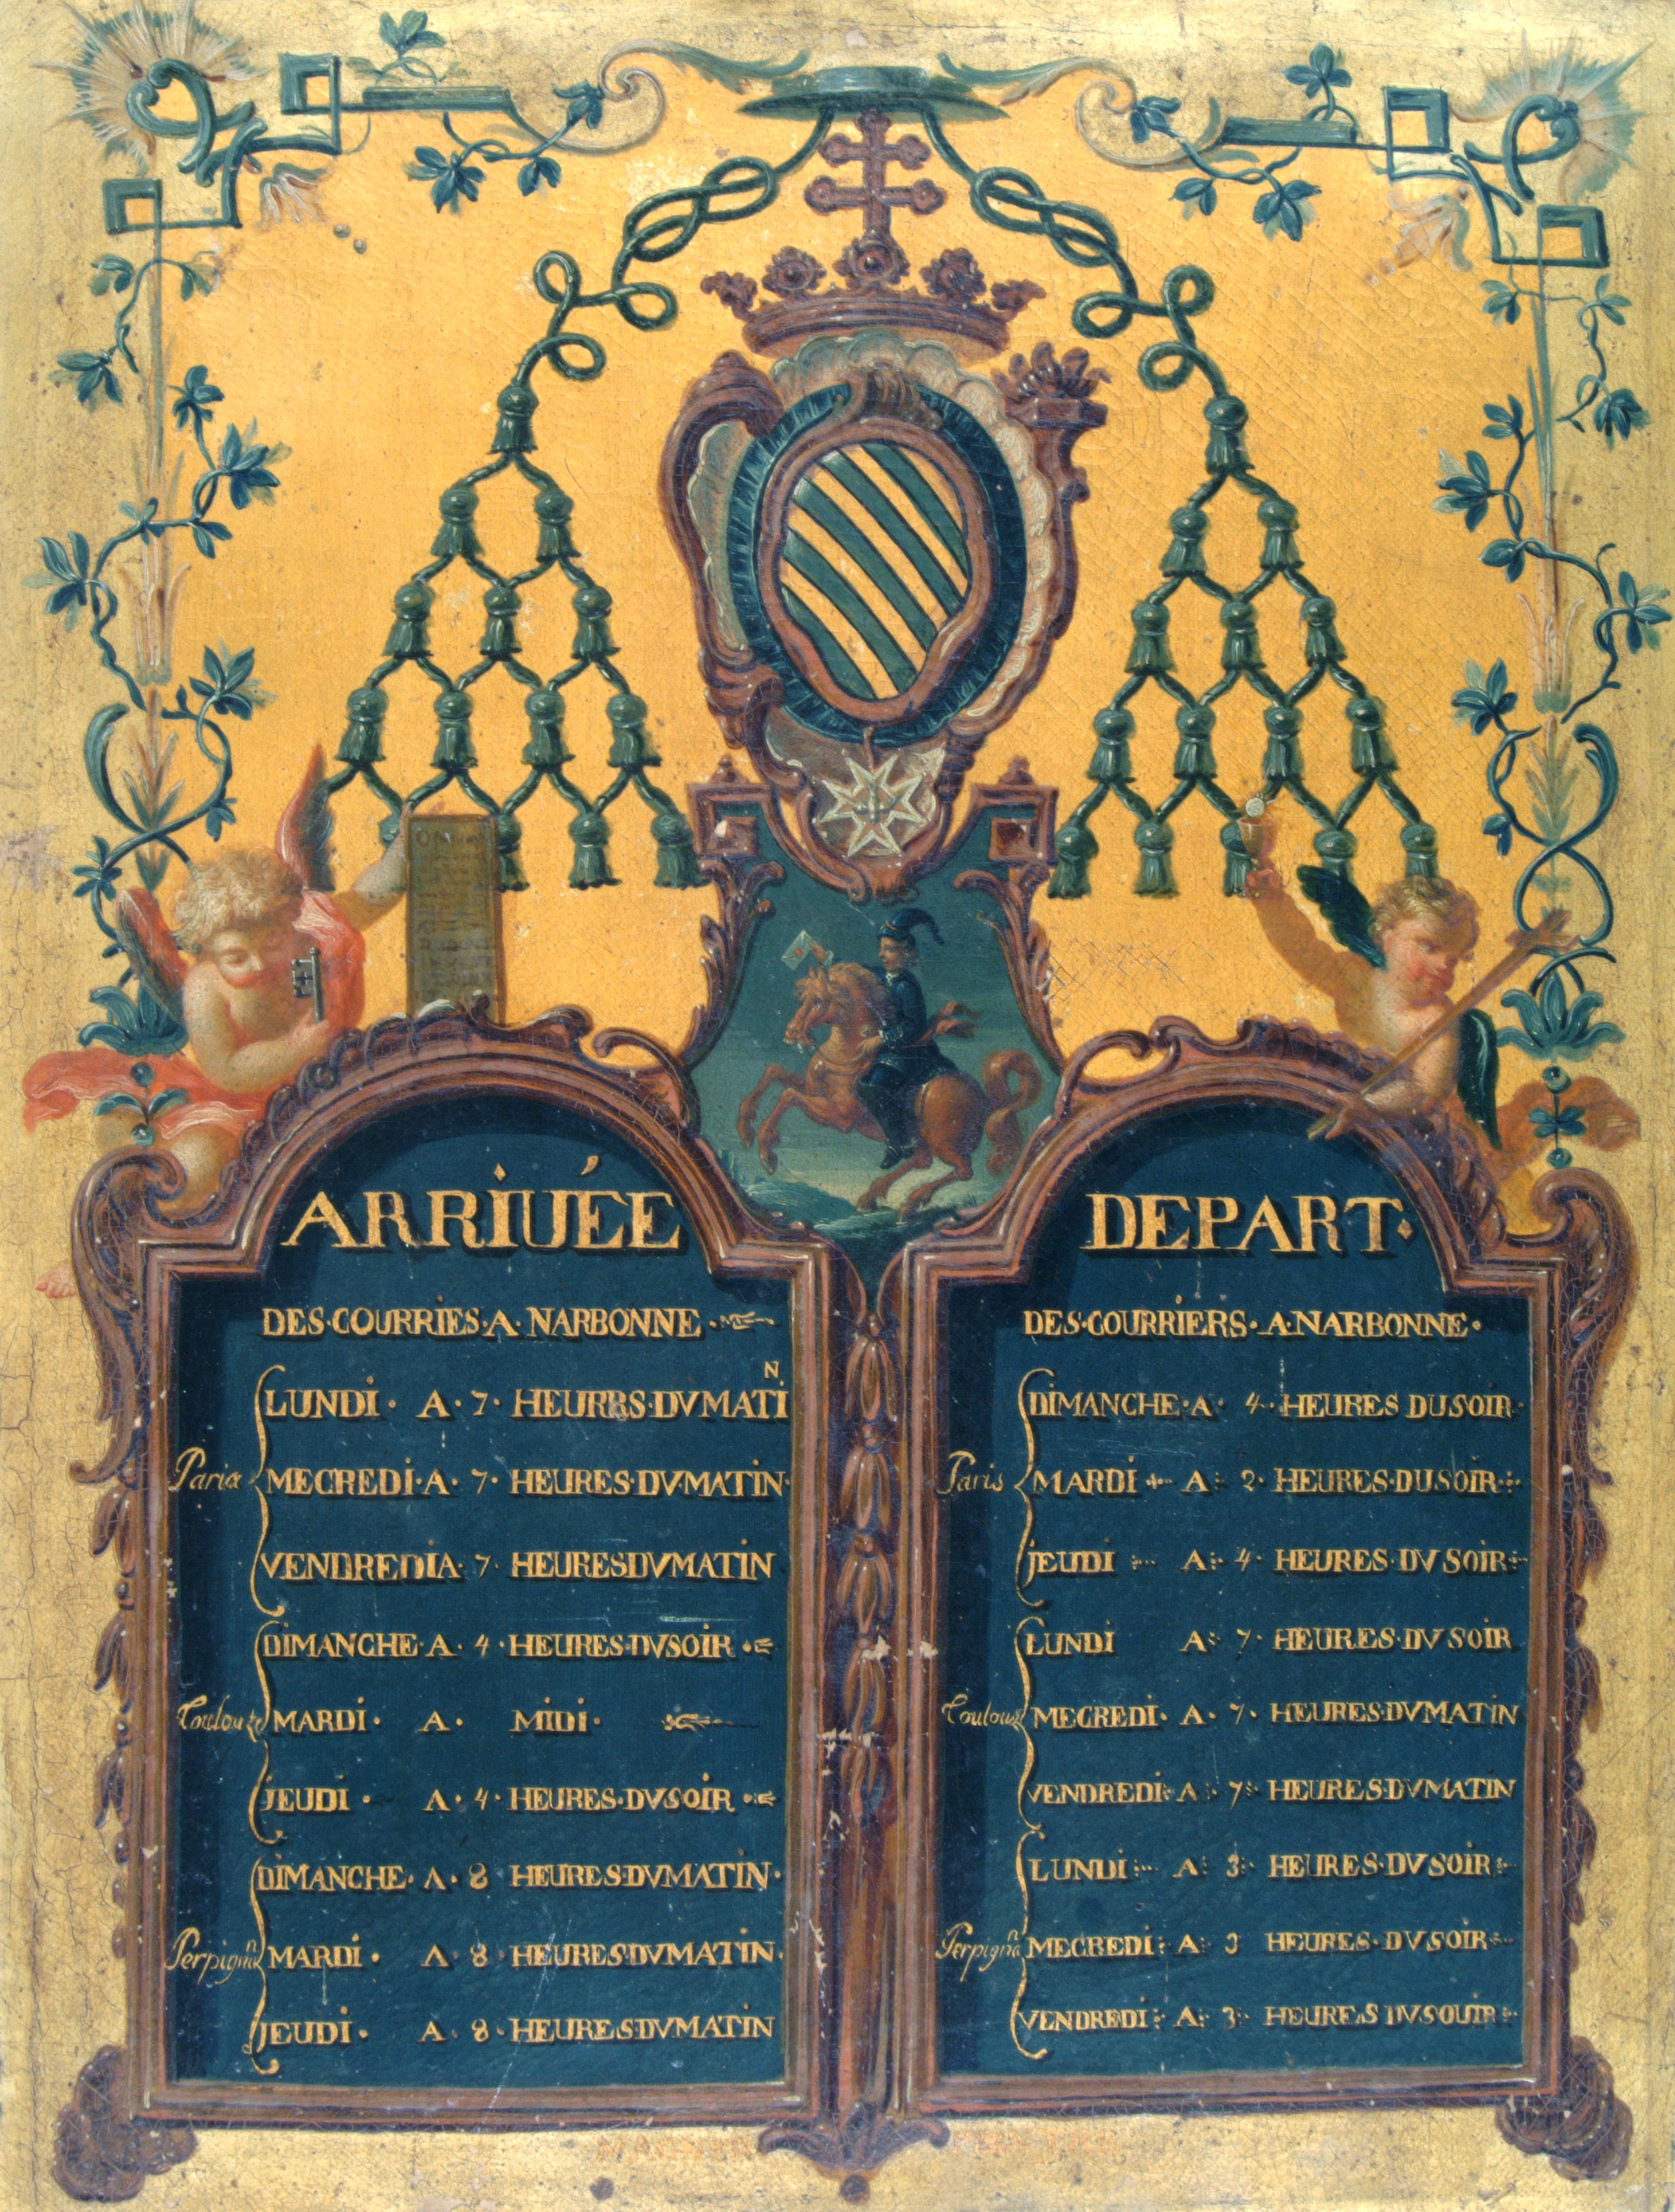 ARRIUÉE
DES·COURRIES·A·NARBONNE·
Paris
LUNDI· A·7· HEURRS·DVMATIN
MECREDI·A· 7· HEURES·DV·MATIN·
VENDREDIA· 7· HEURESDVMATIN
Toulouze
DIMANCHE·A· 4· HEURES·DVSOIR·
MARDI· A· MIDI·
JEUDI· A· 4· HEURES·DVSOIR·
Perpignñ
DIMANCHE· A· 8 HEURES·DVMATIN·
MARDI· A· 8· HEURES·DVMATIN·
JEUDI· A· 8· HEURES·DVMATIN
DEPART·
DES·COURRIERS·A·NARBONNE·
Paris
DIMANCHE·A· 4· HEURES DUSOIR·
MARDI· A· 2· HEURES·DUSOIR·
JEUDI A· 4· HEURES·DV SOIR·
Toulouz
LUNDI A· 7· HEURES·DV SOIR
MECREDI· A· 7· HEURES·DVMATIN
VENDREDI·A· 7· HEURES·DVMATIN
Perpigñ
LUNDI A· 3· HEURES·DVSOIR·
MECREDI· A· 3 HEURES·DVSOIR·
VENDREDI· A· 3· HEURES DVSOUIR·